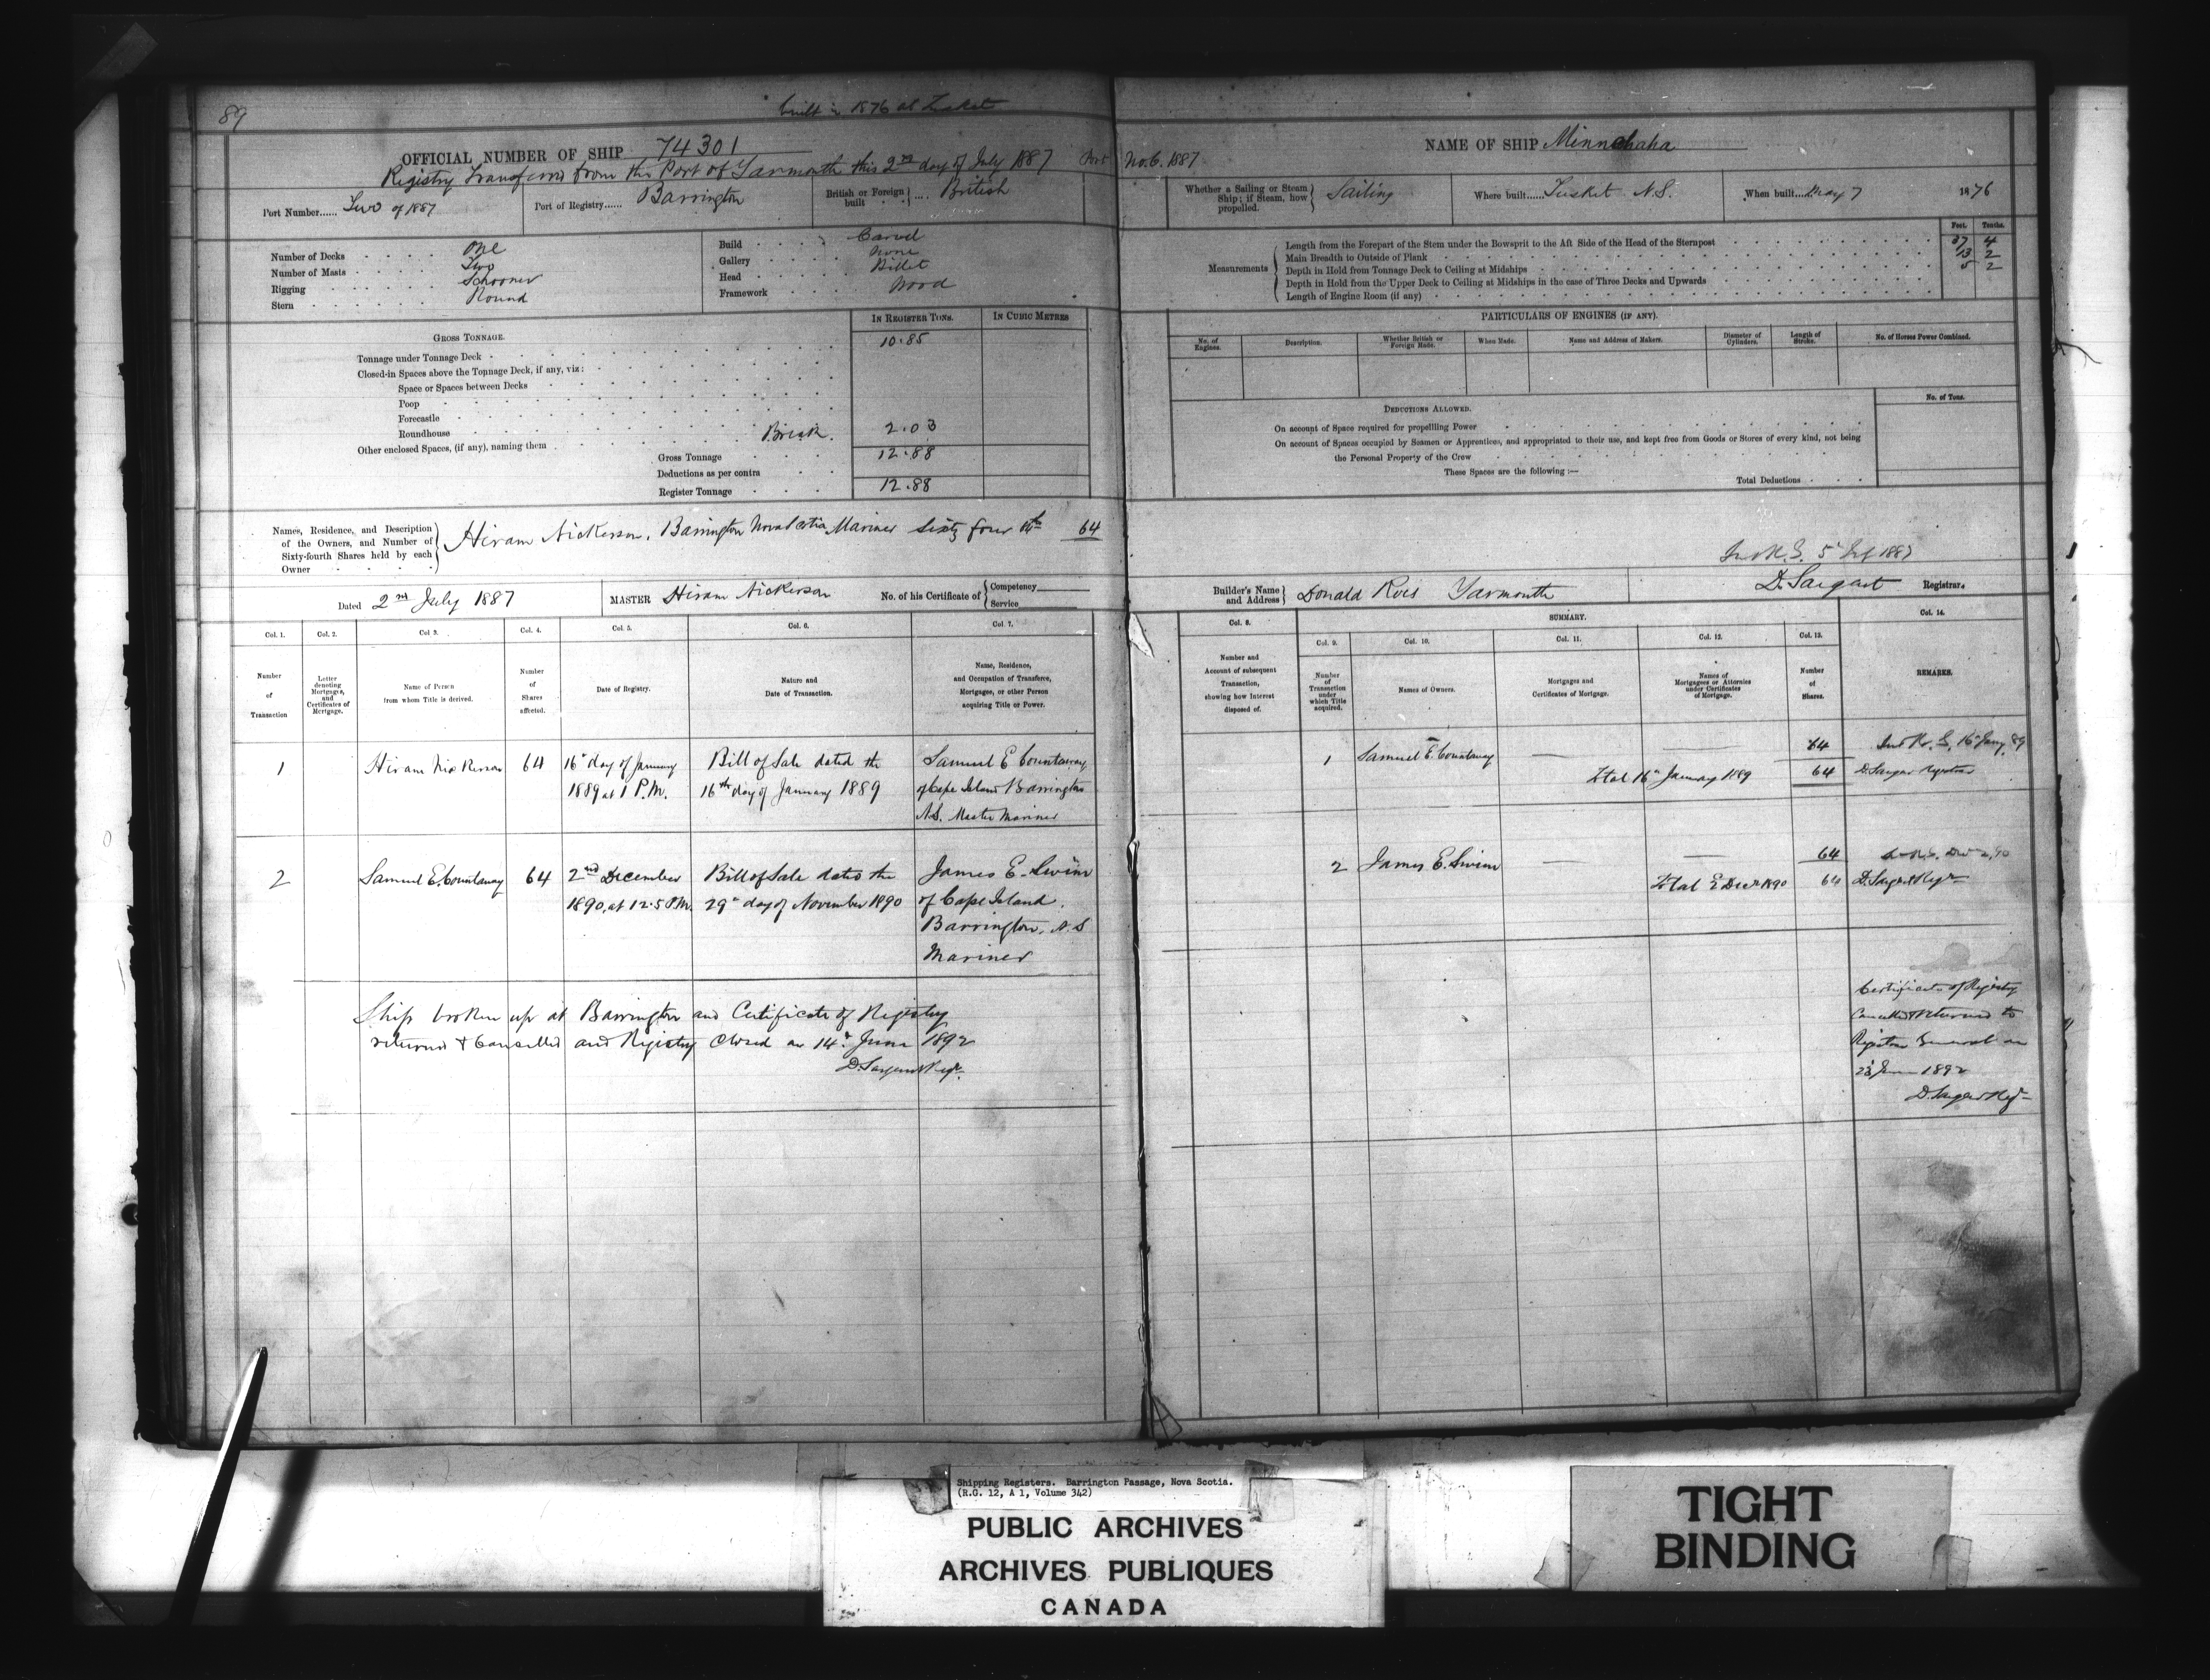 89
built in 1876 at Tusket
OFFICIAL NUMBER OF SHIP 74301
Registry Transferred from the Port of Yarmouth this 2nd day of July 1887
Port Number...... Two of 1887
Port of Registry...... Barrington
British or Foreign built .... British
Number of Decks One
Number of Masts Two
Rigging Schooner
Stern Round
Build Carvel
Gallery None
Head Billet
Framework Wood
IN REGISTER TONS.
IN CUBIC METRES
GROSS TONNAGE.
Tonnage under Tonnage Deck 10.85
Closed-in Spaces above the Tonnage Deck, if any, viz:
Space or Spaces between Decks
Poop
Forecastle
Roundhouse
Other enclosed Spaces, (if any), naming them Break. 2.03
Gross Tonnage 12.88
Deductions as per contra
Register Tonnage 12.88
Names, Residence, and Description of the Owners, and Number of Sixty-fourth Shares held by each Owner
Hiram Nickerson, Barrington Nova Scotia Mariner Sixty four 64
Dated 2nd July 1887
MASTER Hiram Nickerson
No. of his Certificate of
Competency
Service
Col. 1.
Col. 2.
Col 3.
Col. 4.
Col. 5.
Col. 6.
Col. 7.
Number of Transaction
Letter denoting Mortgages, and Certificates of Mortgage.
Name of Person from whom Title is derived.
Number of Shares affected.
Date of Registry.
Nature and Date of Transaction.
Name, Residence, and Occupation of Transferee, Mortgagee, or other Person acquiring Title or Power.
1
Hiram Nickerson
64
16th day of January
1889 at 1 P.M.
Bill of Sale dated the
16th day of January 1889
Samuel E Countaway
of Cape Island Barrington
N.S. Master Mariner
2
Samuel E. Countaway
64
2nd December
1890, at 12.5 P.M.
Bill of Sale dated the
29th day of November 1890
James E. Swim
of Cape Island,
Barrington, N.S
Mariner
Ship broken up at Barrington and Certificate of Registry
returned & Cancelled and Registry Closed on 14th June 1892
D. Sargent Regr.
No. 6. 1887
NAME OF SHIP Minnehaha
Whether a Sailing or Steam Ship; if Steam, how propelled. Sailing
Where built...... Tusket N.S.
When built.... May 7 1876
Measurements
Feet. Tenths.
Length from the Forepart of the Stem under the Bowsprit to the Aft Side of the Head of the Sternpost 37 4
Main Breadth to Outside of Plank 13 2
Depth in Hold from Tonnage Deck to Ceiling at Midships 5 2
Depth in Hold from the Upper Deck to Ceiling at Midships in the case of Three Decks and Upwards
Length of Engine Room (if any)
PARTICULARS OF ENGINES (IF ANY).
No. of Engines.
Description.
Whether British or Foreign Made.
When Made.
Name and Address of Makers.
Diameter of Cylinders.
Length of Stroke.
No. of Horses Power Combined.
DEDUCTIONS ALLOWED.
No. of Tons.
On account of Space required for propellling Power
On account of Spaces occupied by Seamen or Apprentices, and appropriated to their use, and kept free from Goods or Stores of every kind, not being
the Personal Property of the Crew
These Spaces are the following :—
Total Deductions
1887
Builder's Name and Address Donald Yarmouth
D. Sargent Registrar.
SUMMARY.
Col. 8.
Col. 9.
Col. 10.
Col. 11.
Col. 12.
Col. 13.
Col. 14.
Number and Account of subsequent Transaction, showing how Interest disposed of.
Number of Transaction under which Title acquired.
Names of Owners.
Mortgages and Certificates of Mortgage.
Names of Mortgagees or Attornies under Certificates of Mortgage.
Number of Shares.
REMARKS.
1
Samuel E. Countaway
64
Total 16th January 1889 64
D. Sargent Registrar
2
James E. Swim
64
Total 2 Decr 1890 64
D. Sargent Regr
Certificate of Registry
Cancelled & returned to
Registrar General on
23 June 1892
D. Sargent Regr
Shipping Registers. Barrington Passage, Nova Scotia.
(R.G. 12, A 1, Volume 342)
PUBLIC ARCHIVES
ARCHIVES PUBLIQUES
CANADA
TIGHT
BINDING